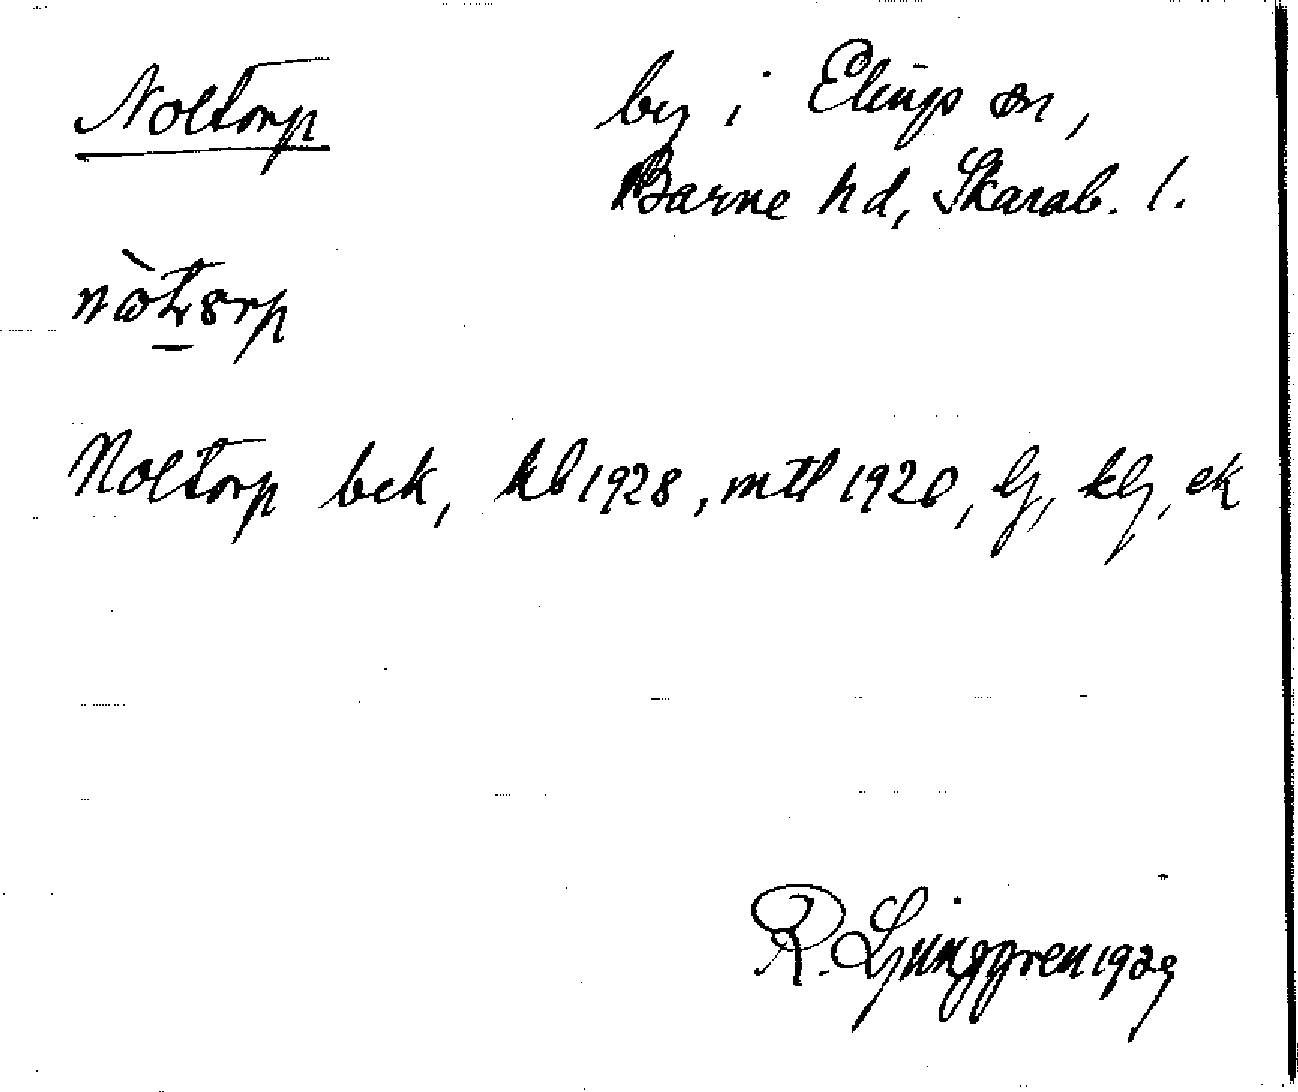 Noltorp by i Elings sn,
Barne hd, Skarab. l.
Noltorp bck, kb 1928, mtl 1920, lj, klj, ek
R. Ljunggren 1929